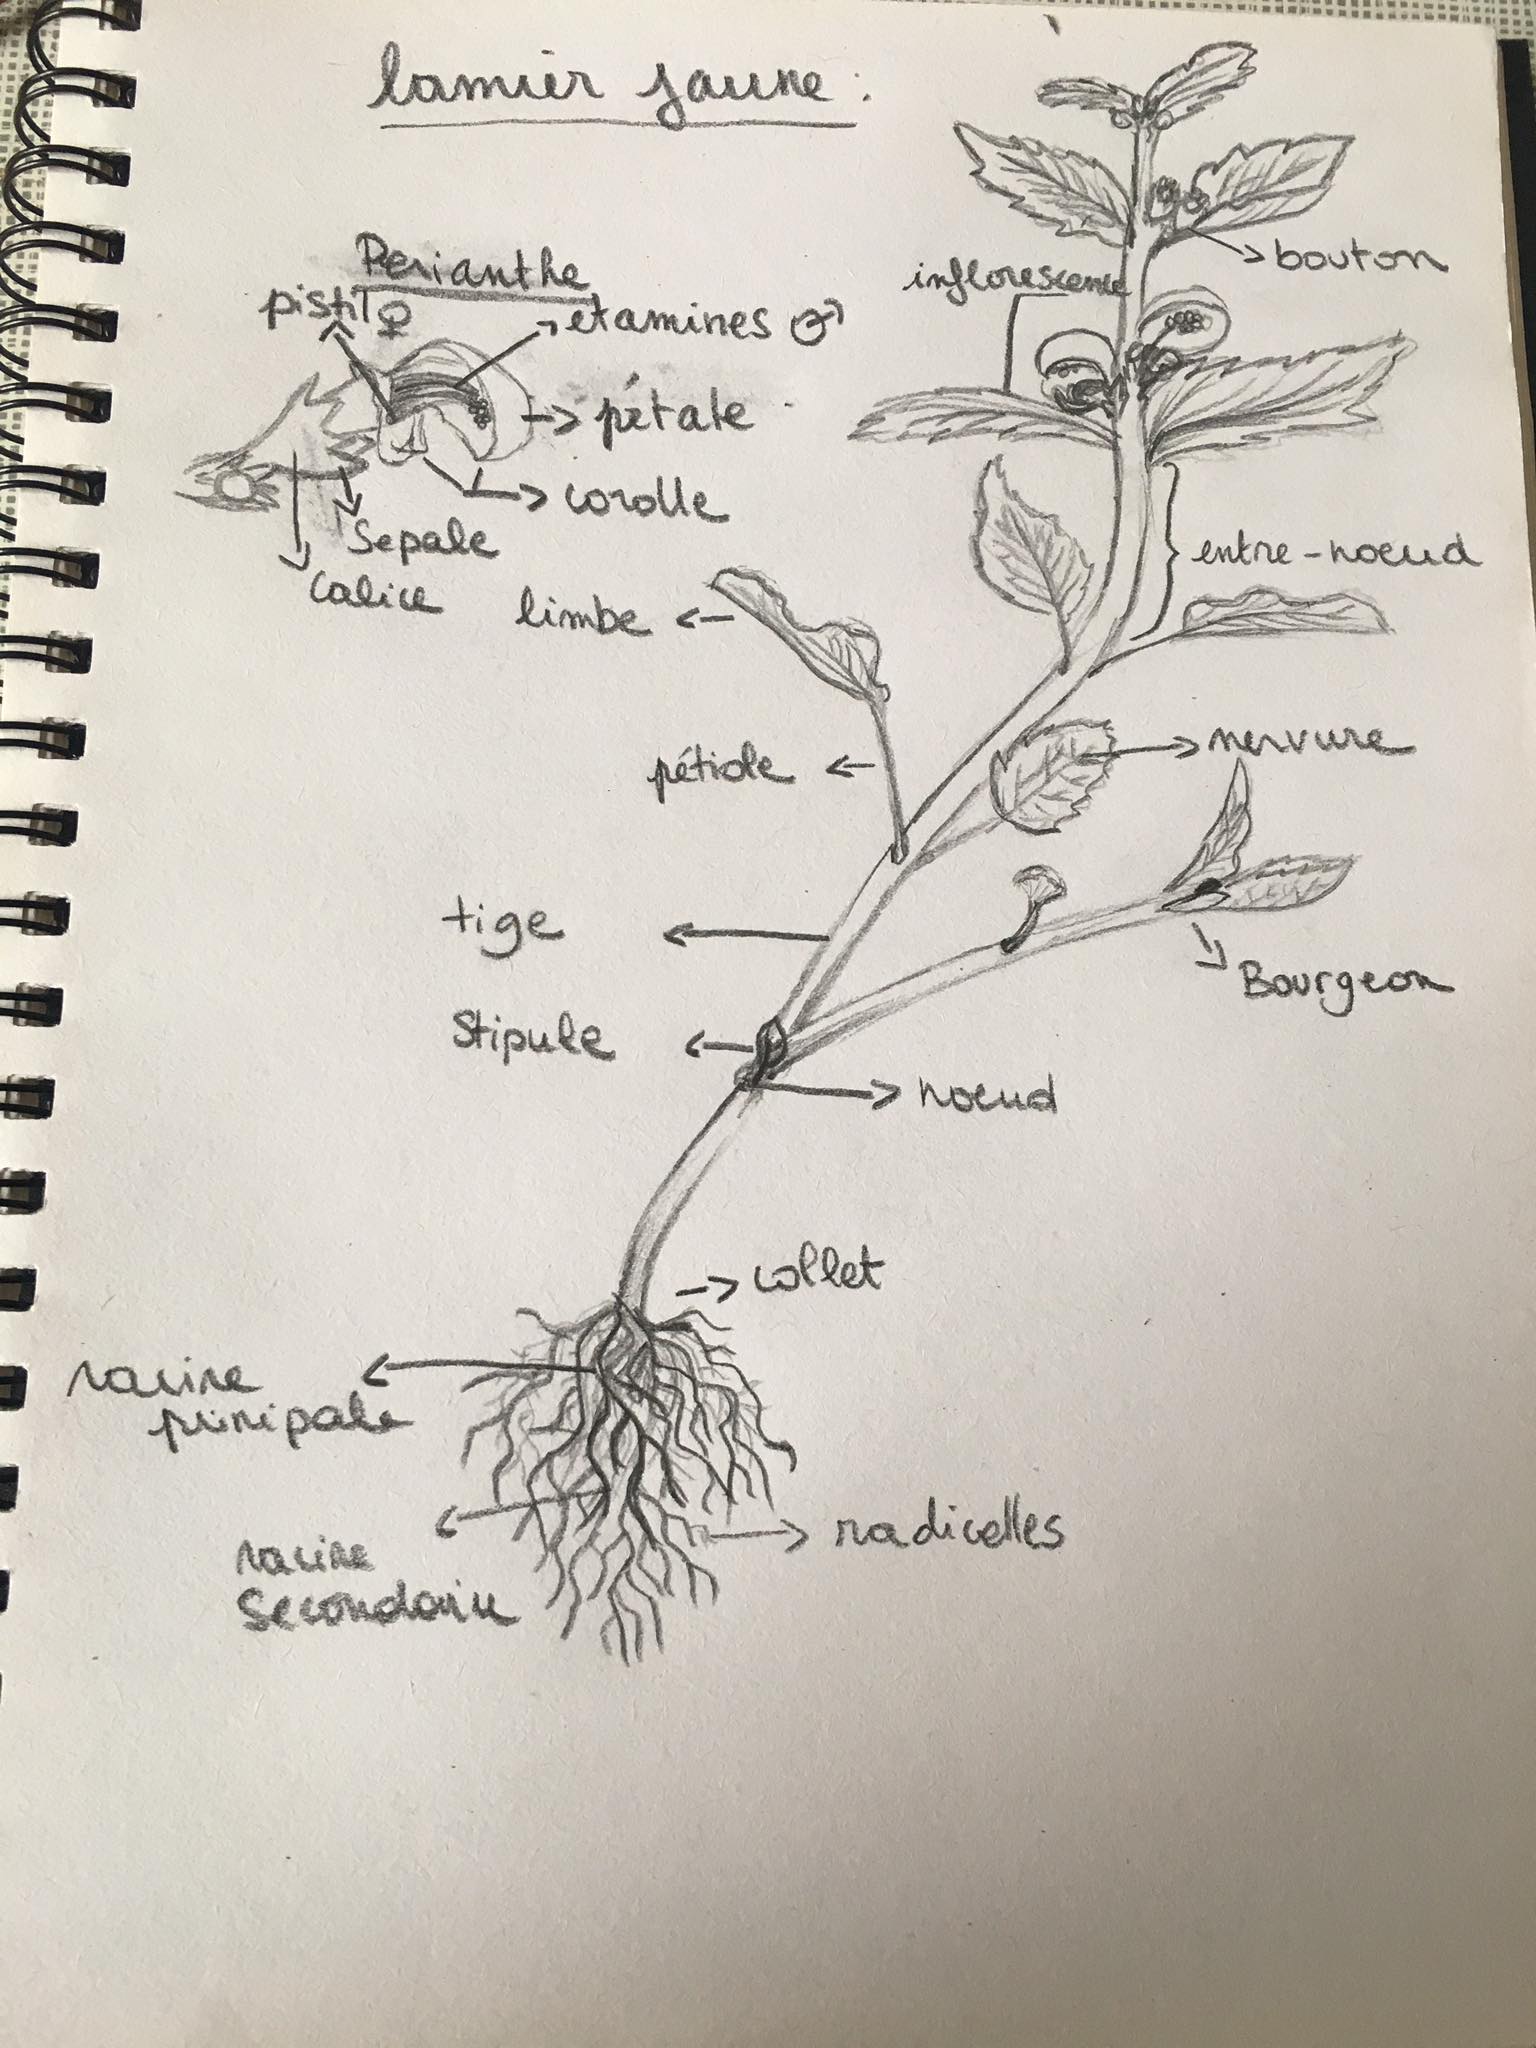 lamier jaune :
Perianthe
pistil ♀
etamines ♂
pétale
corolle
Sepale
Calice
inflorescence
bouton
entre-noeud
limbe
pétiole
nervure
tige
Bourgeon
Stipule
noeud
collet
racine
prinipale
radicelles
racine
Secondaire